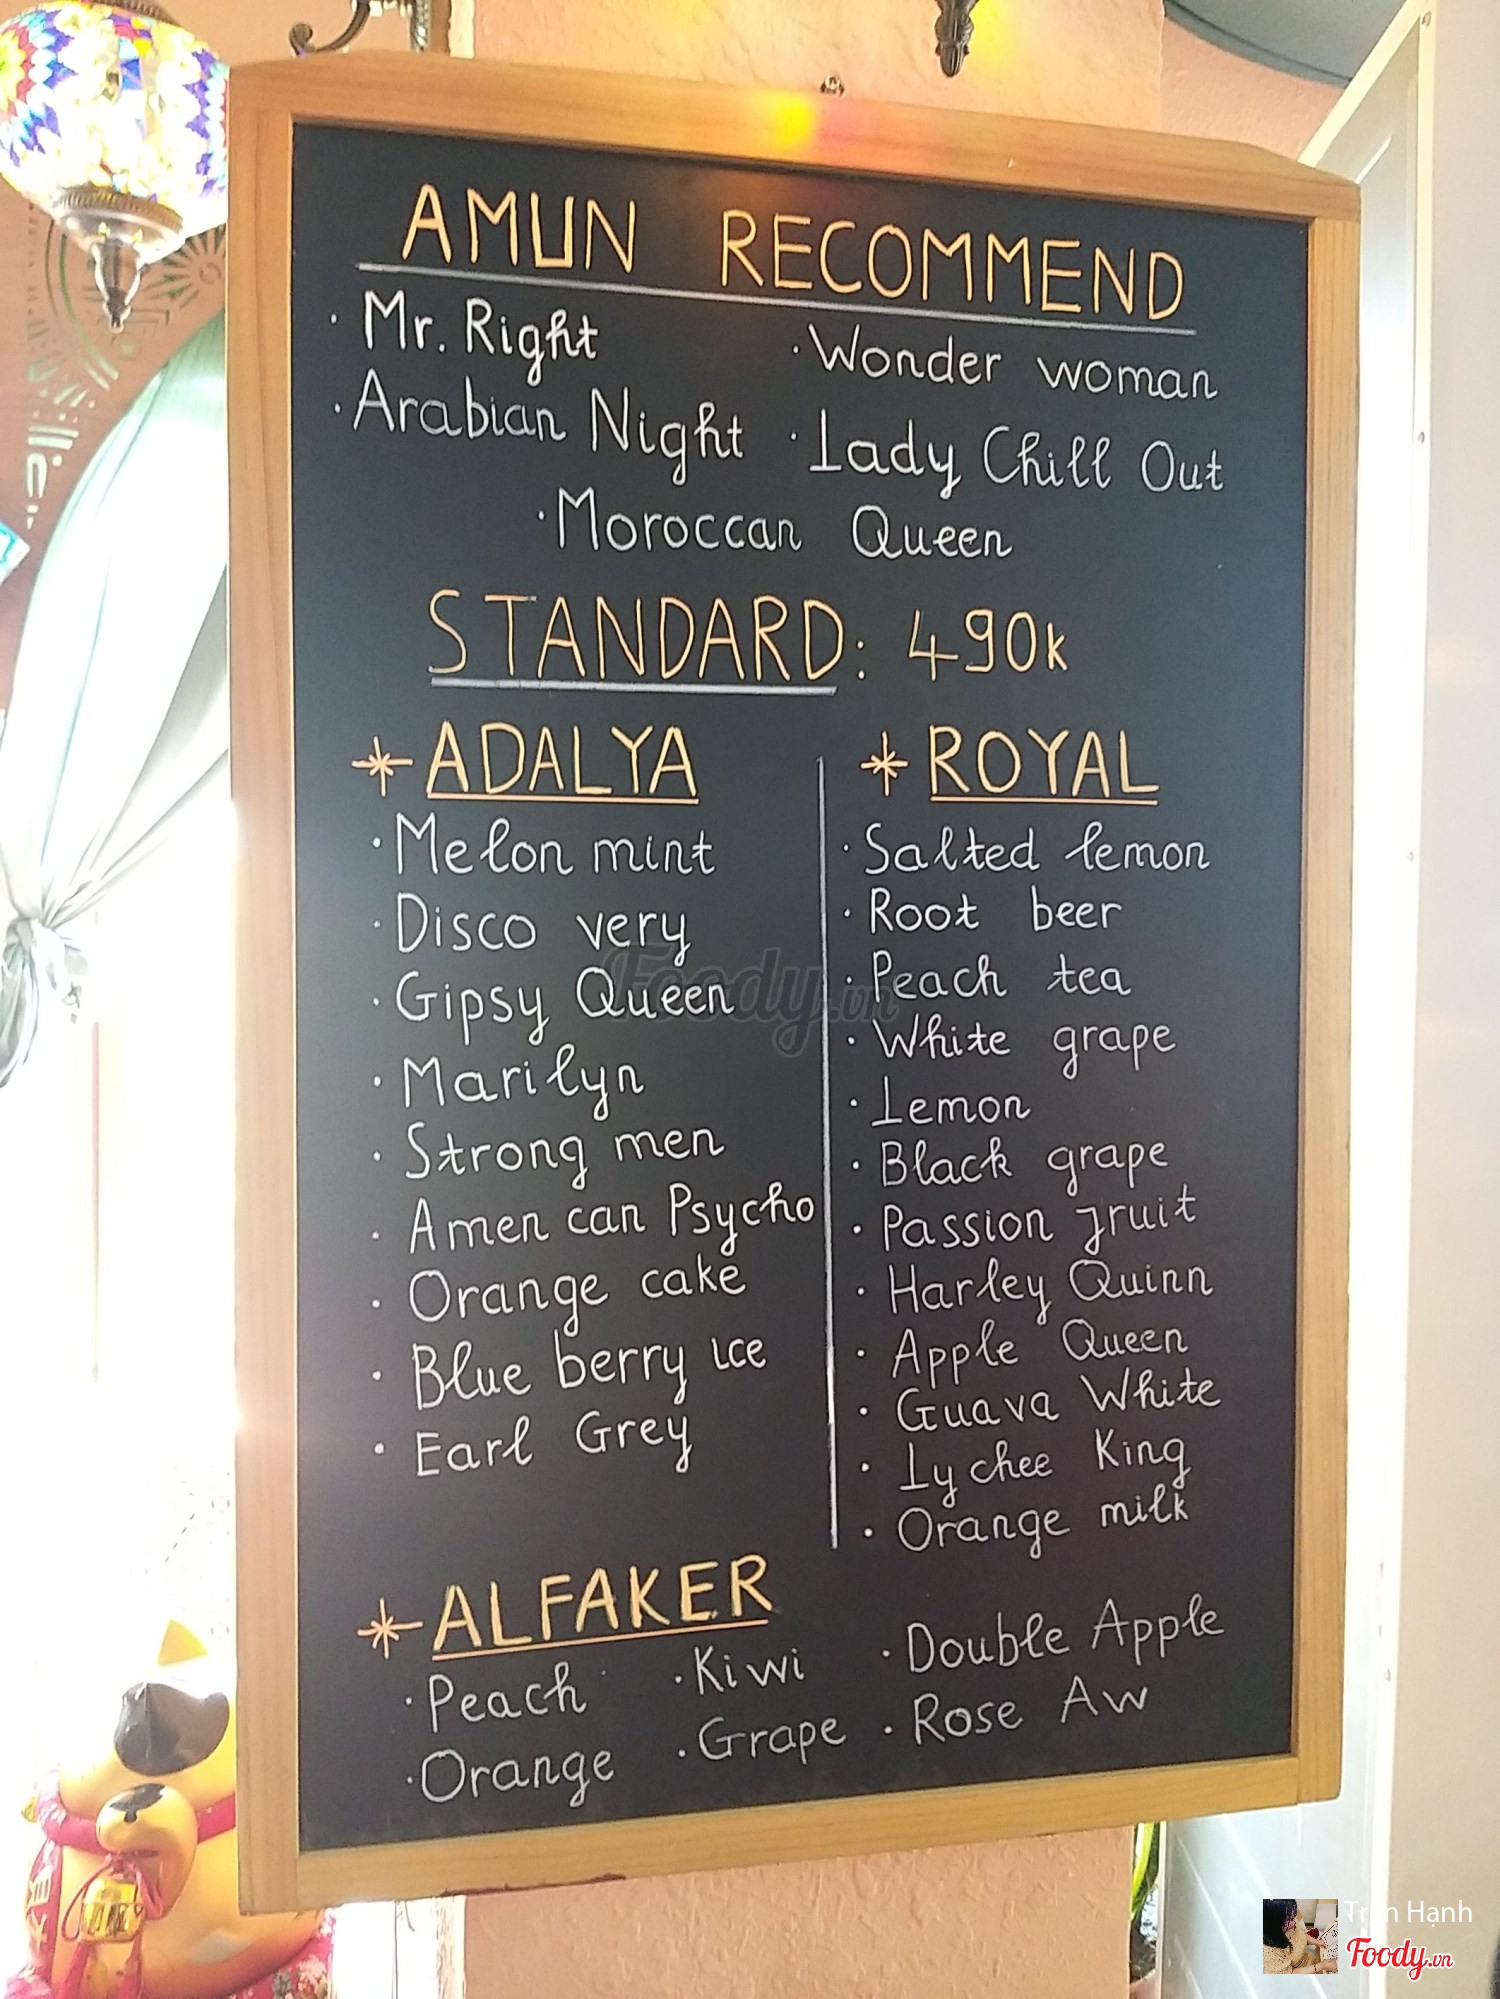 AMUN RECOMMEND
· Mr. Right · Wonder woman
· Arabian Night · Lady Chill Out
· Moroccan Queen
STANDARD: 490k
* ADALYA
· Melon mint
· Disco very
· Gipsy Queen
· Marilyn
· Strong men
· Amen can Psycho
· Orange cake
· Blue berry ice
· Earl Grey
* ROYAL
· Salted lemon
· Root beer
· Peach tea
· White grape
· Lemon
· Black grape
· Passion fruit
· Harley Quinn
· Apple Queen
· Guava White
· Lychee King
· Orange milk
* ALFAKER
· Peach · Kiwi · Double Apple
· Orange · Grape · Rose Aw
Foody.vn
Trần Hạnh
Foody.vn